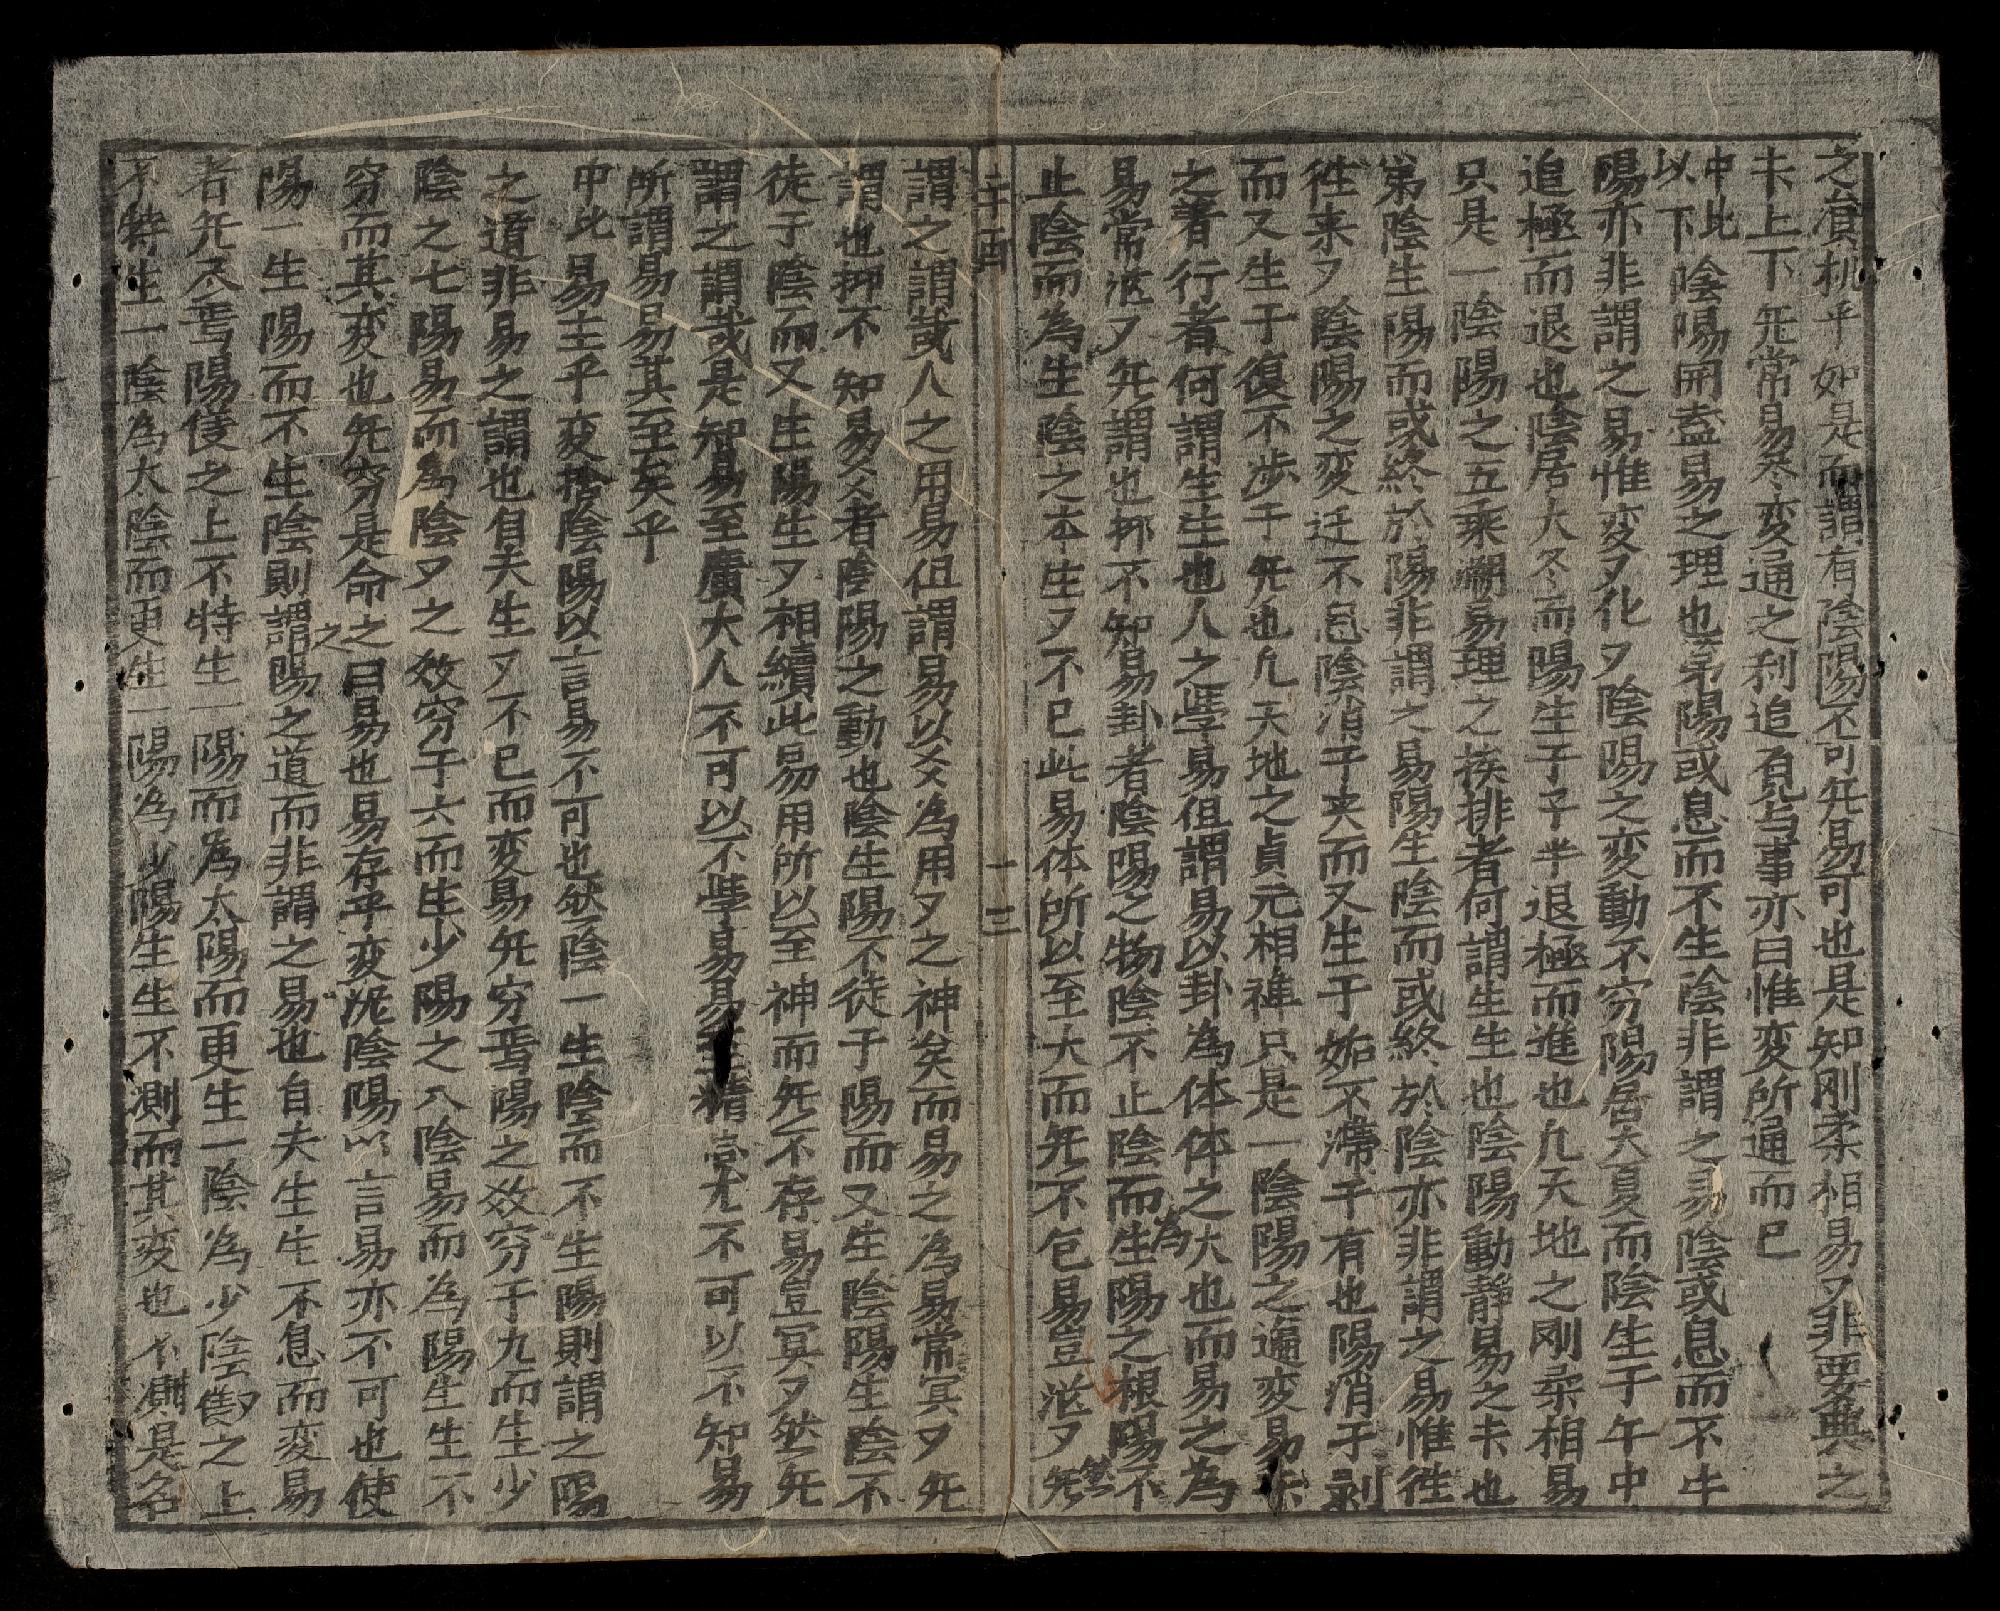 之賾机乎如是而謂有陰陽不可旡易可也是知刚柔相易又非要典之
卡上下旡常易卒変通之利追見与事亦曰惟変所通而已
中此
以下陰陽用盍易之理也弟陽或息而不生陰非謂之易陰或息而不生
陽亦非謂之易惟変夕化夕陰陽之変動不穷陽居大夏而陰生于午中
追極而退也陰居大冬而陽生于子半退極而進也凢天地之刚柔相易
只是一陰陽之五乘溯易理之挨排者何謂生生也陰陽動靜易之卡也
弟陰生陽而或終於陽非謂之易陽生陰而或終於陰亦非謂之易惟徃
徃来夕陰陽之変迁不息陰消于夬而又生于姤不滯于有也陽消于剥
而又生于復不歩于旡也凢天地之貞元相禅只是一陰陽之遍変易卡
之著行者何謂生生也人之學易但謂易以卦為体体之大也而易之為
易常滋夕旡謂也抑不知易卦者陰陽之物陰不止陰而生陽為之根陽不
止陰而為生陰之本生夕不已此易体所以至大而旡不包易豈滋夕然旡
十西 十三
謂之謂㢤人之用易但謂易以爻為用夕之神矣而易之為易常冥夕旡
謂也抑不知易爻者陰陽之動也陰生陽不徒于陽而又生陰陽生陰不
徒于陰而又生陽生夕相續此易用所以至神而旡不存易豈冥夕然旡
謂之謂㢤是知易至廣大人不可以不學易易至精㣲尤不可以不知易
所謂易易其至矣乎
中比易主乎変捨陰陽以言易不可也然一陰一生陰而不生陽則謂之陽
之道非易之謂也自夫生夕不已而変易旡穷焉陽之效穷于九而生少
陰之七陽易而為陰夕之效穷于六而生少陽之八陰易而為陽生生不
穷而其変也旡穷是命之曰易也易存乎変泥陰陽以言易亦不可也使
陽一生陽而不生陰則謂陽之之道而非謂之易也自夫生生不息而変易
者旡尽焉陽隻之上不特生一陽而為太陽而更生一陰為少陰隻夕之上
不特生一陰為太陰而更生一陽為少陽生生不測而其変也不測是名